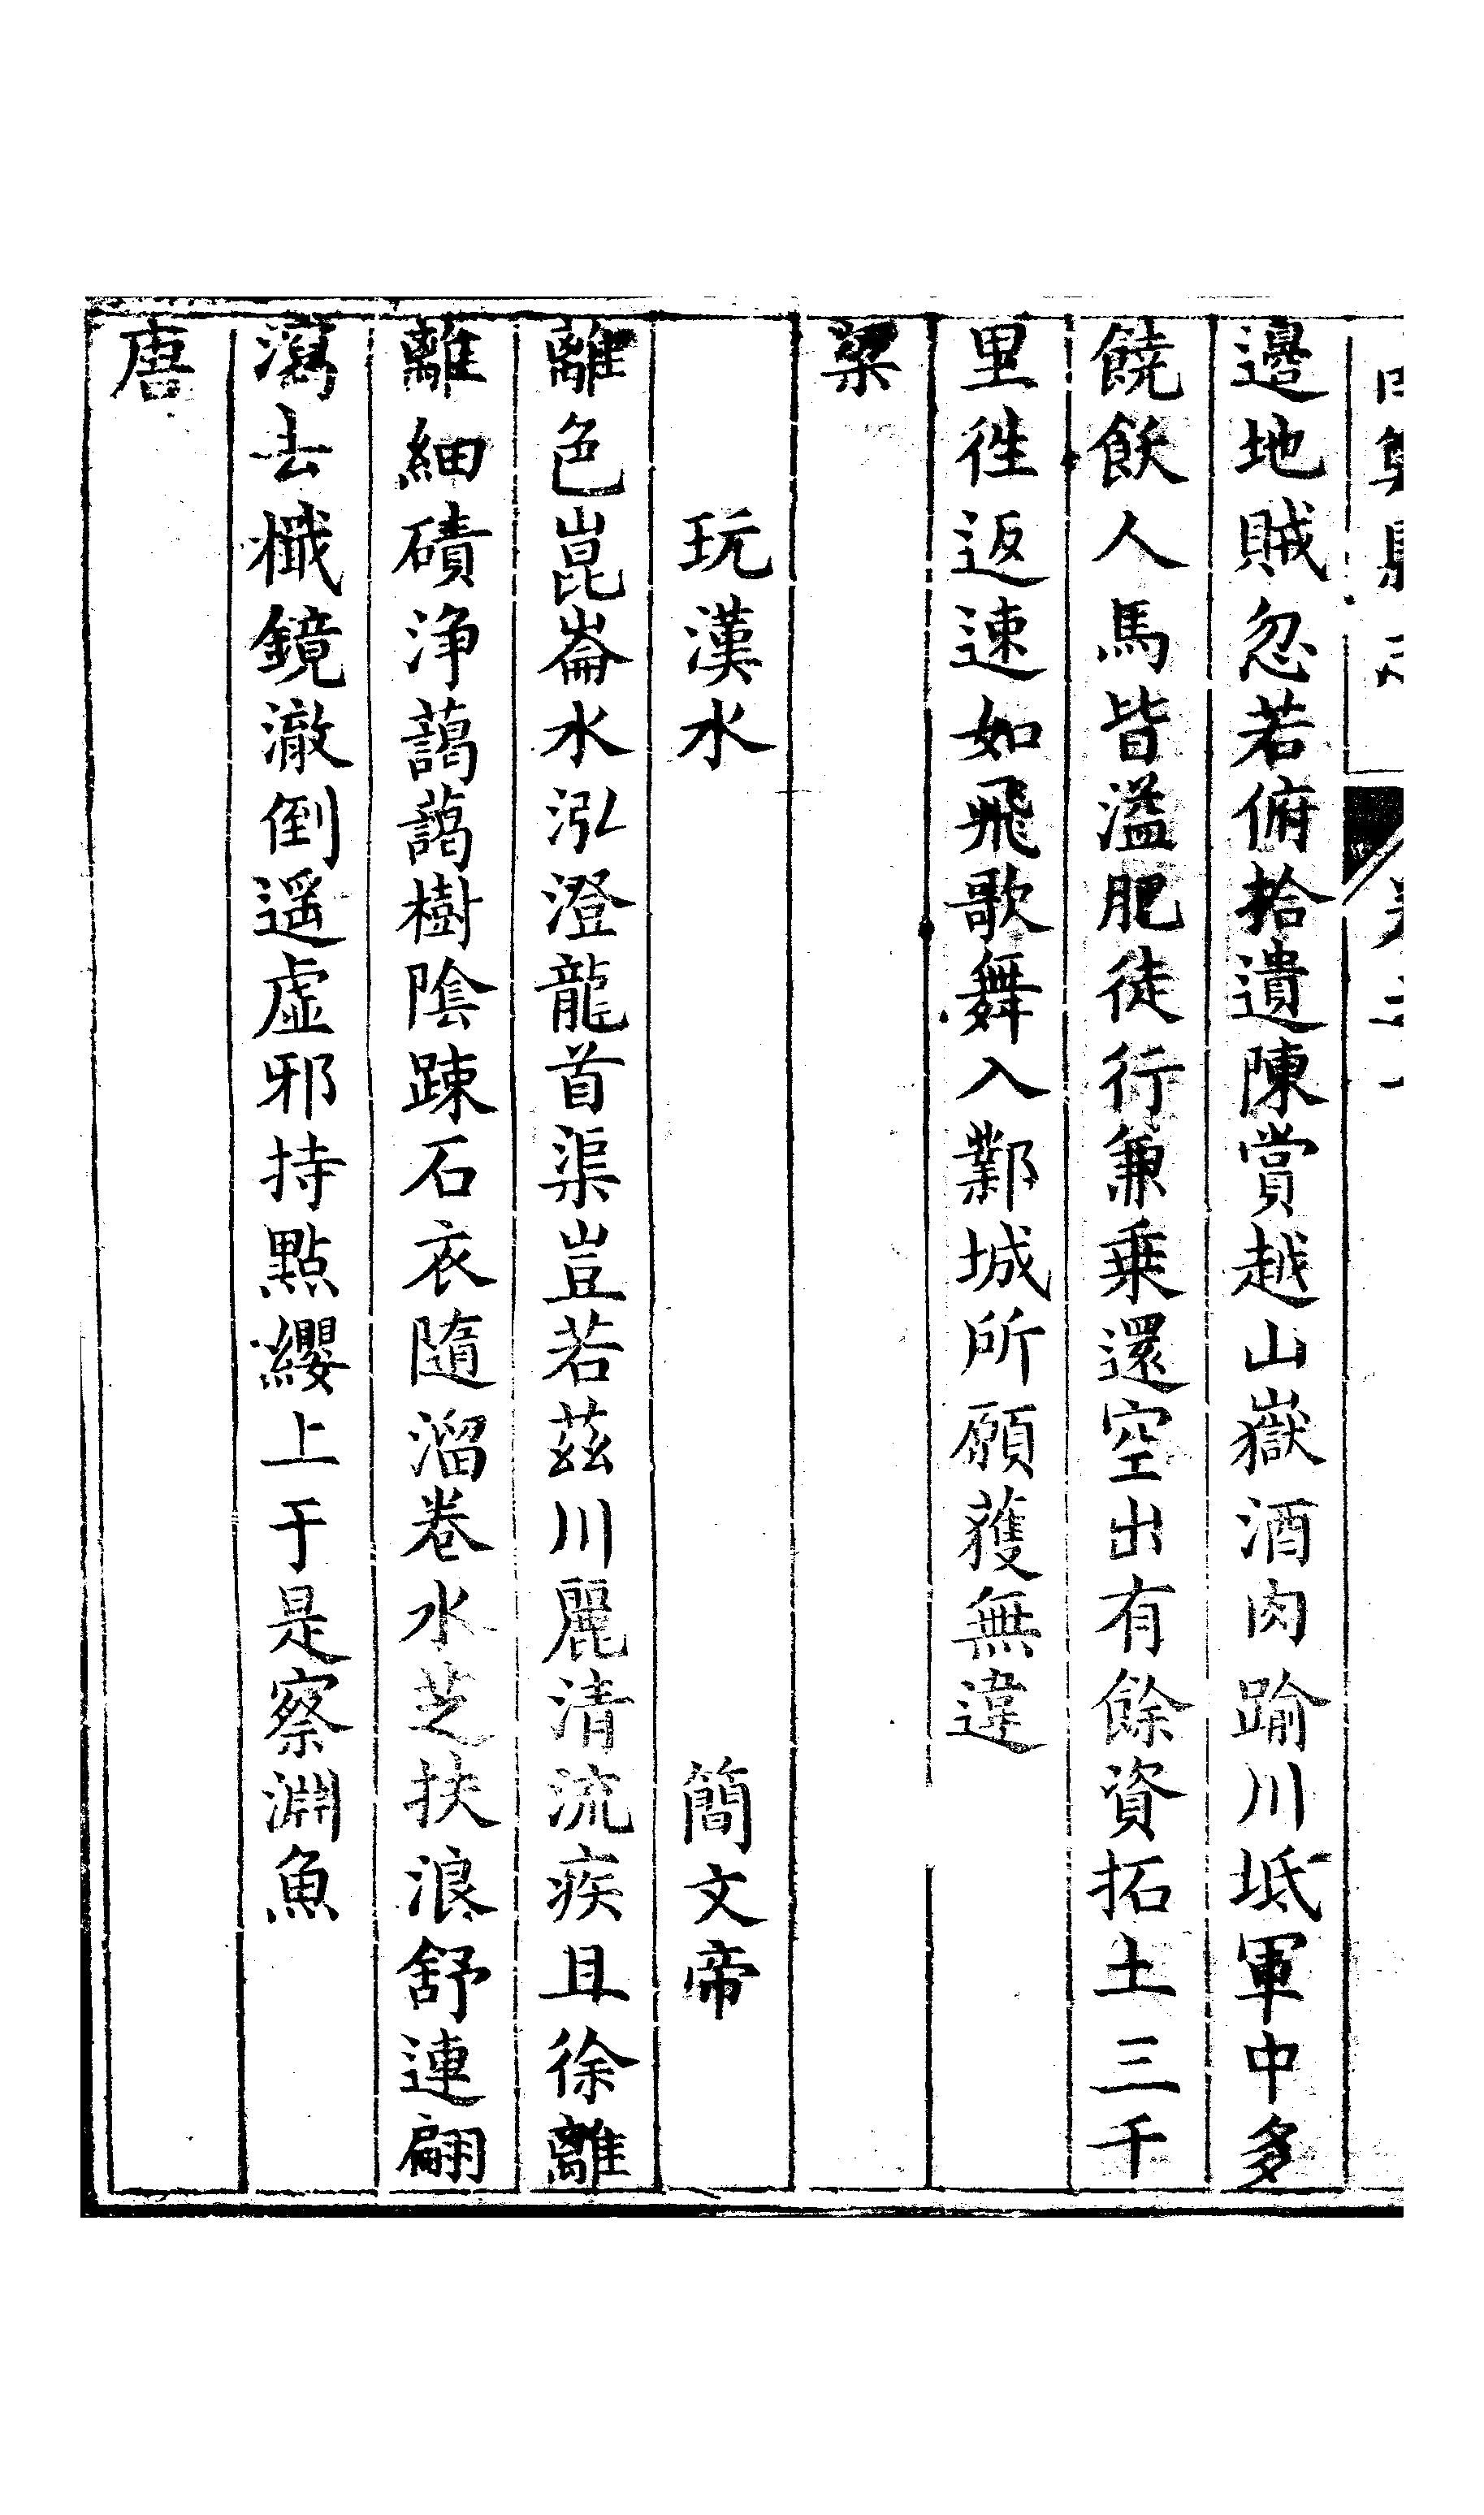 邊地賊忽若俯拾遺陳賞越山嶽酒肉踰川坻軍中多
饒飫人馬皆溢肥徒行兼乗還空出有餘資拓土三千
里徃返速如飛歌舞入鄴城所願獲無違
梁
玩漢水 簡文帝
離色崑崙水泓澄龍首渠豈若茲川麗清流疾且徐離
離細磧浄藹藹樹陰踈石衣隨溜卷水芝扶浪舒連翩
瀉去檝鏡澈倒遥虛邪持點纓上于是察淵魚
唐